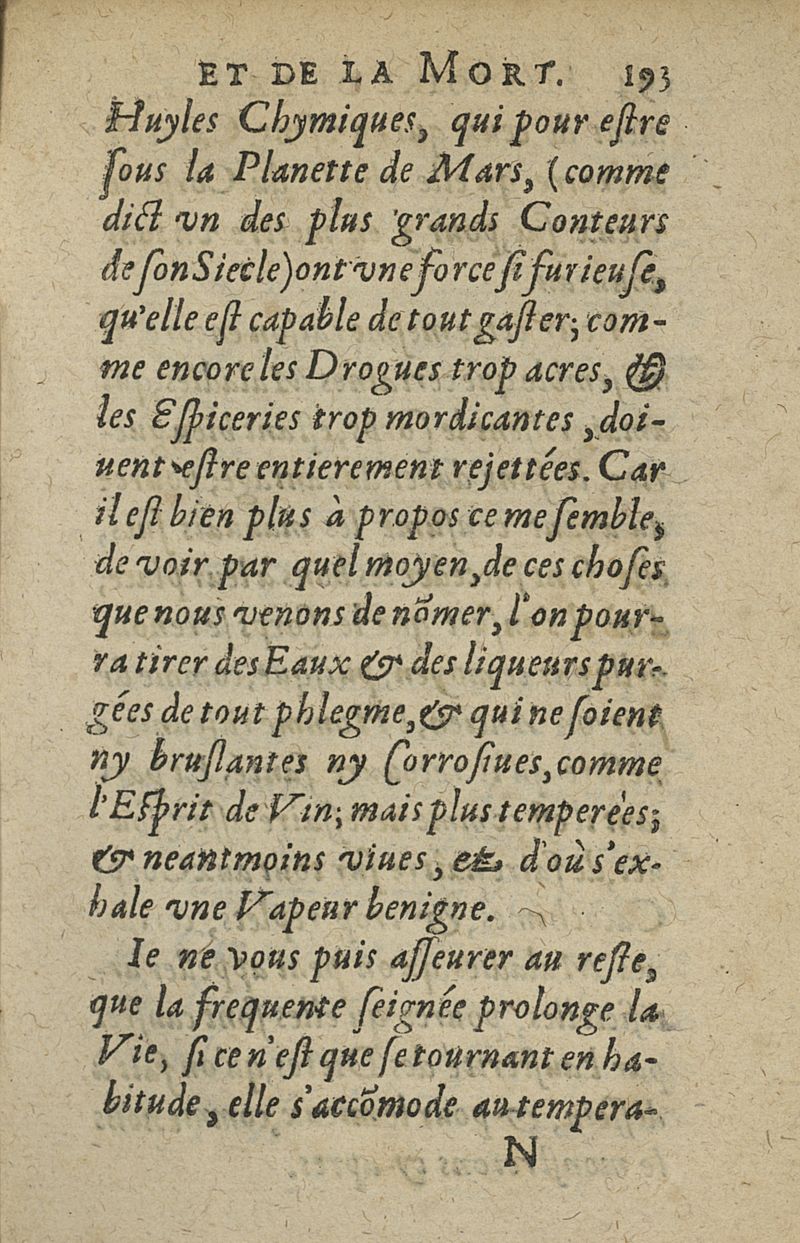 ET DE LA MORT. 193
Huyles Chymiques, qui pour eſtre
ſous la Planette de Mars, (comme
dict vn des plus grands Conteurs
de ſon Siecle) ont vne force ſi furieuſe,
qu'elle eſt capable de tout gaſter; com-
me encore les Drogues trop acres, &
les Eſpiceries trop mordicantes, doi-
uent eſtre entierement rejettées. Car
il eſt bien plus à propos ce me ſemble,
de voir par quel moyen, de ces choſes
que nous venons de nõmer, l'on pour-
ra tirer des Eaux & des liqueurs pur-
gées de tout phlegme, & qui ne ſoient
ny bruſlantes ny Corroſiues, comme
l'Eſprit de Vin; mais plus temperées;
& neantmoins viues, & d'où s'ex-
hale vne Vapeur benigne.
Ie ne vous puis aſſeurer au reſte,
que la frequente ſeignée prolonge la
Vie, ſi ce n'eſt que ſe tournant en ha-
bitude, elle s'accõmode au tempera-
N